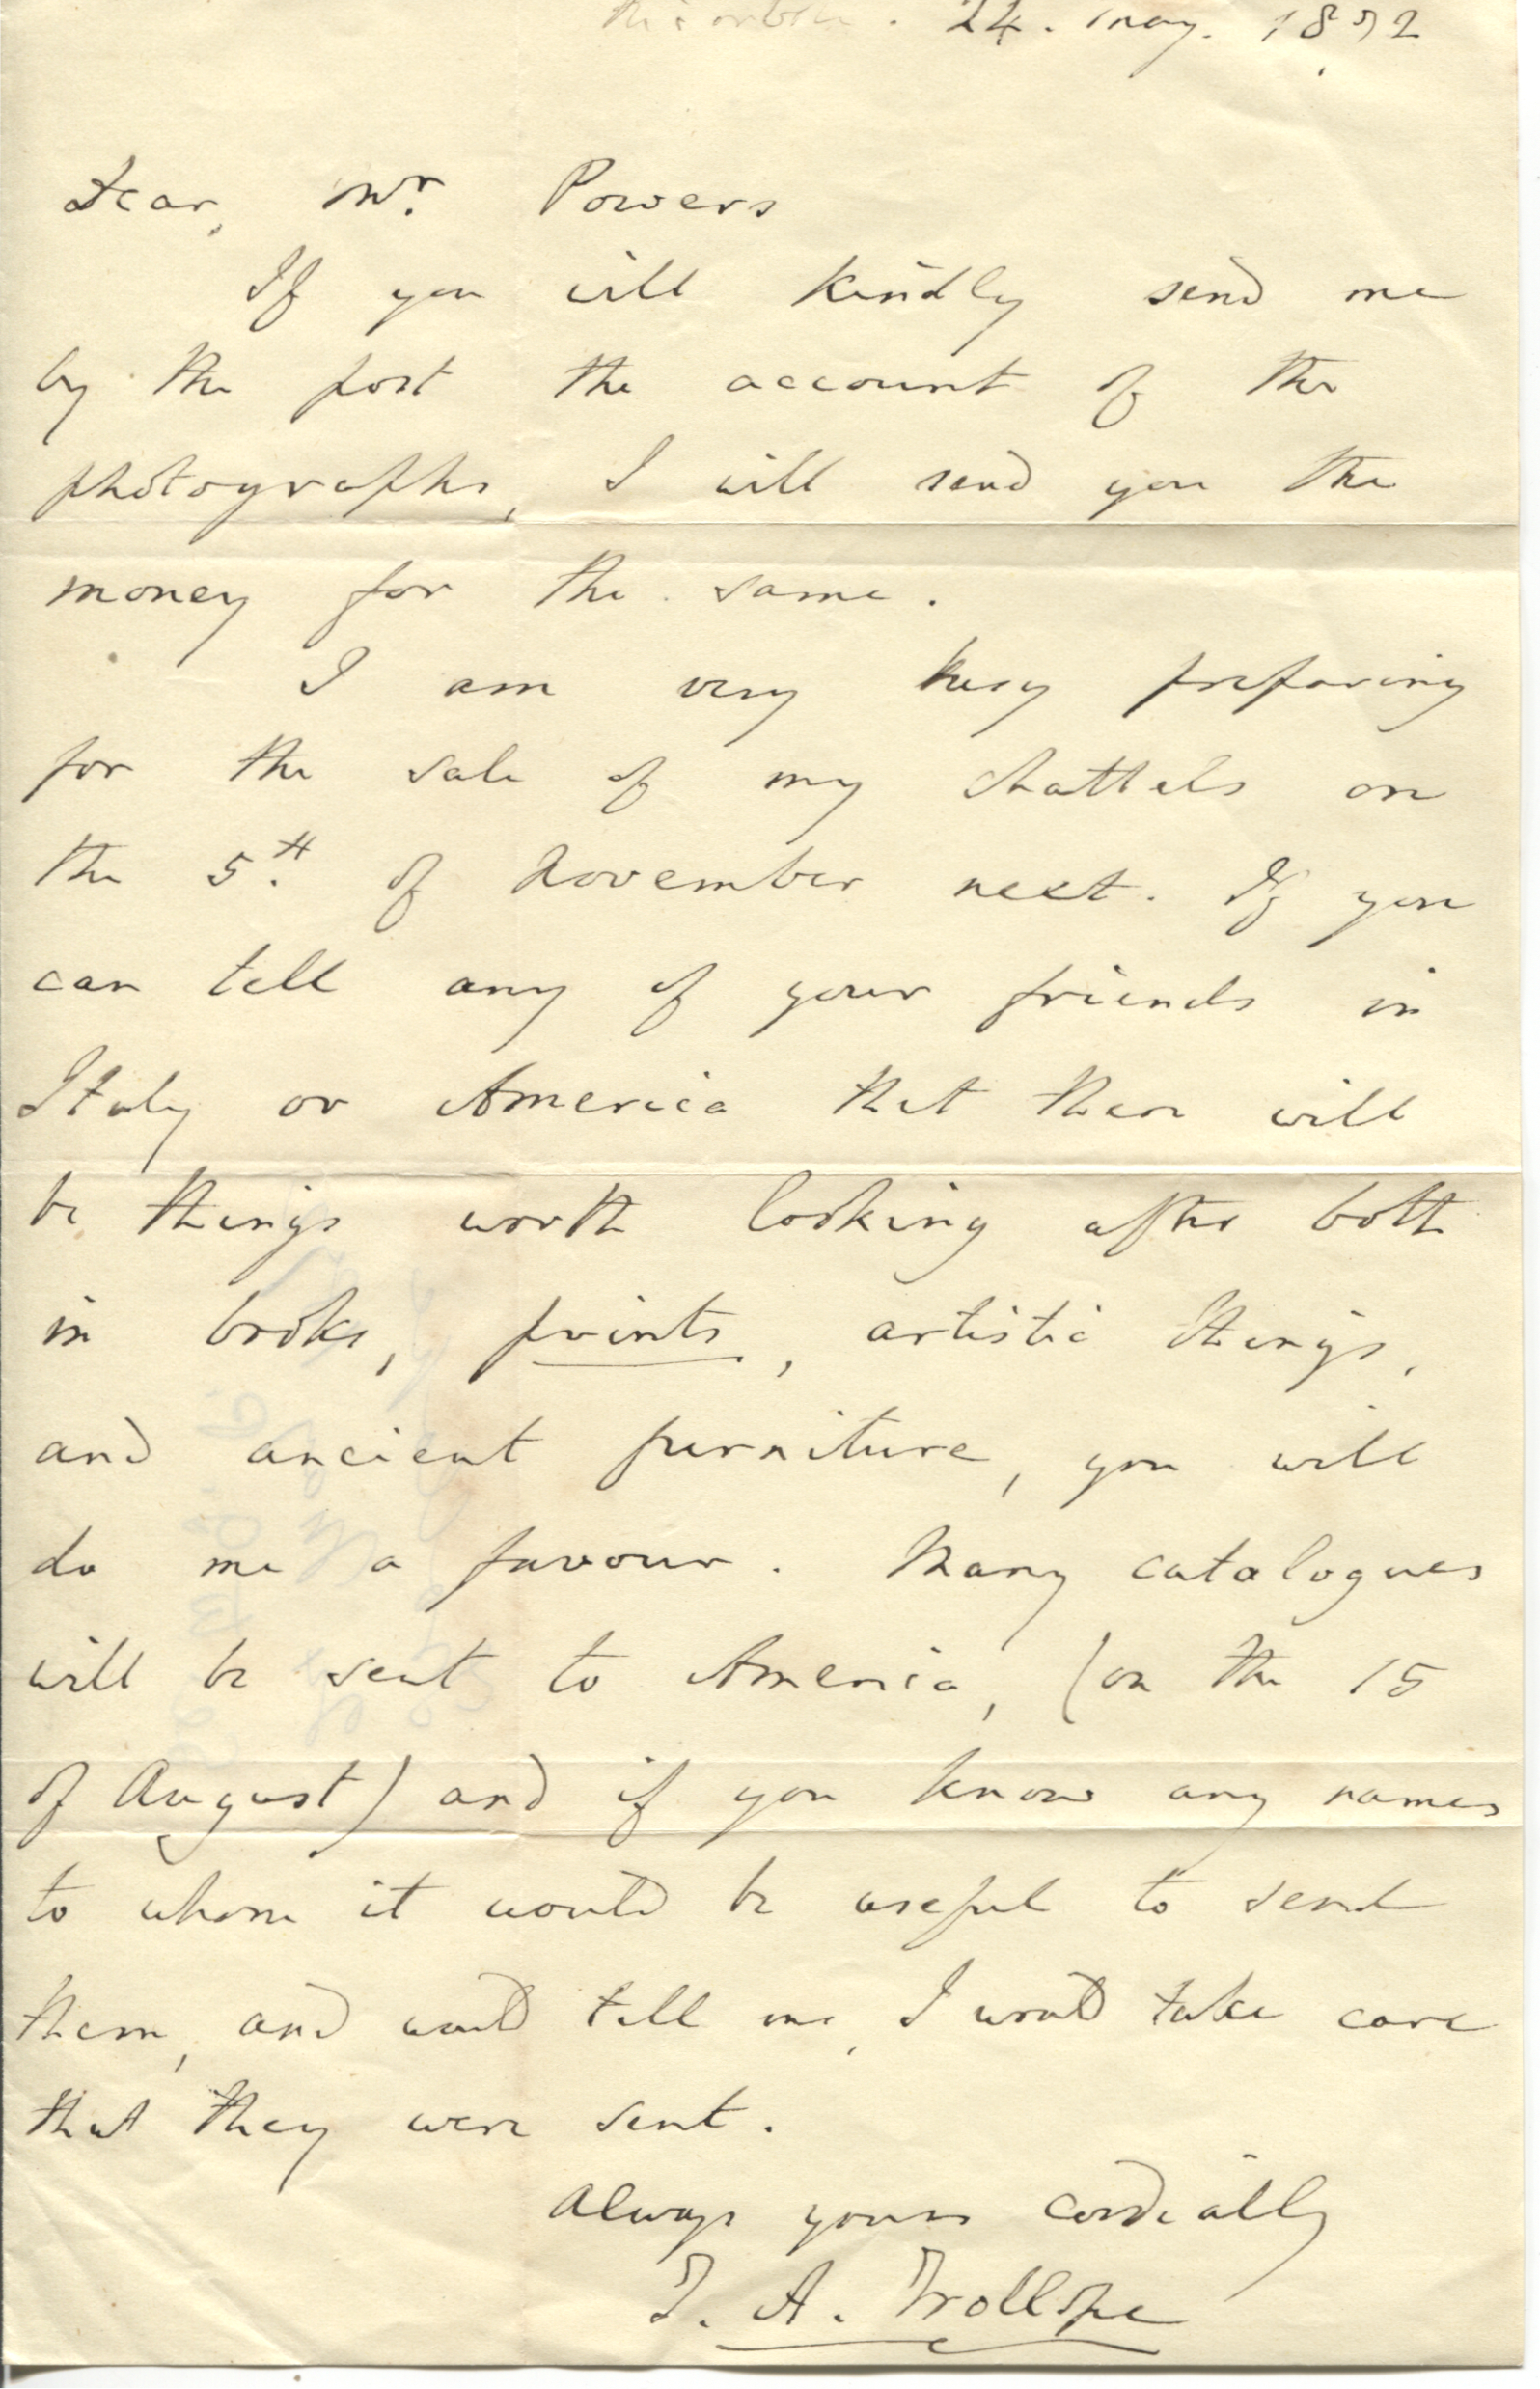 24. May. 1872
Dear, Mr. Powers
If you will kindly send me
by the post the account of the
photographs, I will send you the
money for the same.
I am very busy preparing
for the sale of my chattels on
the 5th. of November next. If you
can tell any of your friends in
Italy or America that there will
be things worth looking after both
in books, prints, artistic things,
and ancient furniture, you will
do me a favour. Many catalogues
will be sent to America, (on the 15
of August) and if you know any names
to whom it would be useful to send
them, and would tell me, I would take care
that they were sent.
Always yours cordially
T. A. Trollope